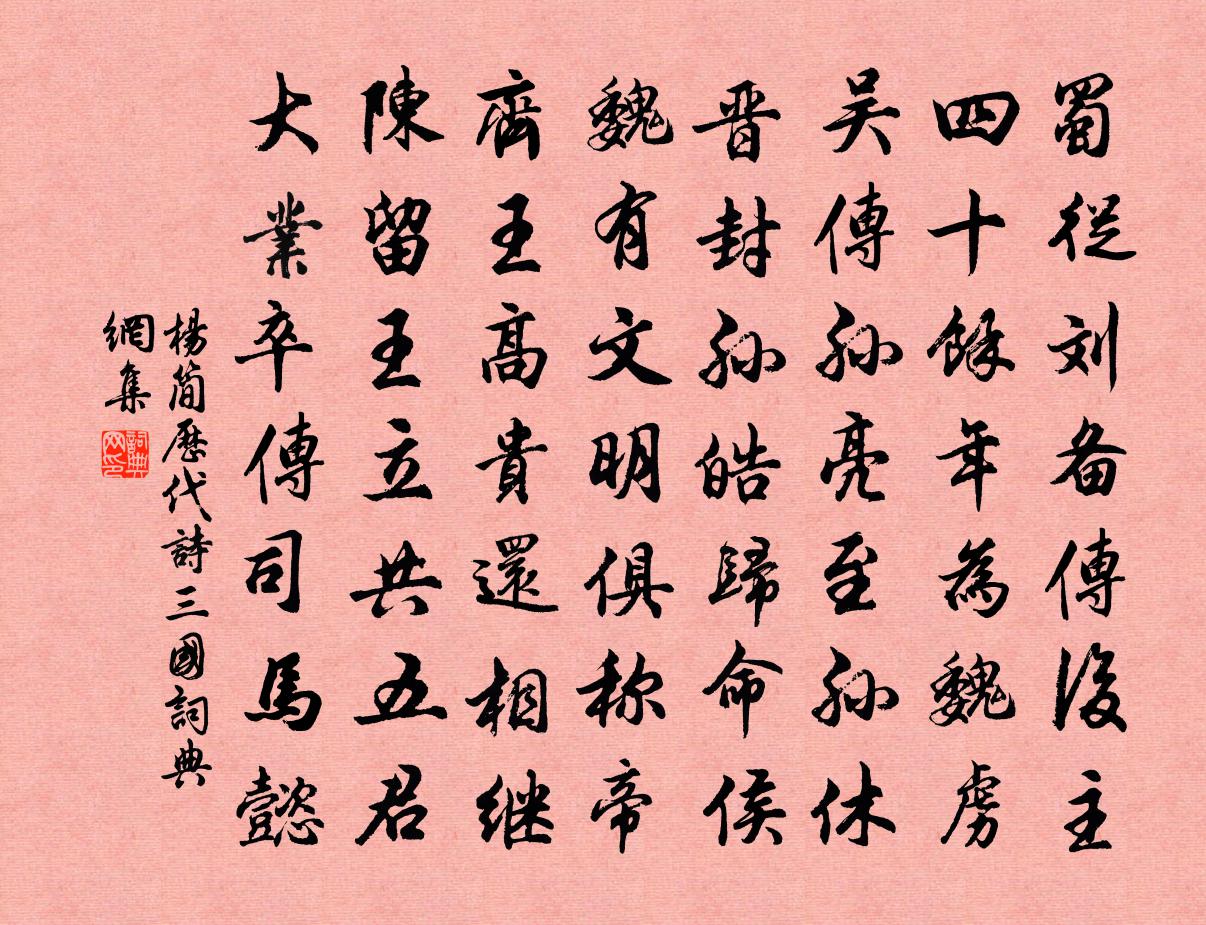 蜀從刘备傳後主
四十餘年為魏虜
吴傳孙亮至孙休
晋封孙皓歸命侯
魏有文明俱称帝
齊王高貴還相继
陳留王立共五君
大業卒傳司馬懿
楊简歷代詩三國詞典
網集
詞典
网印